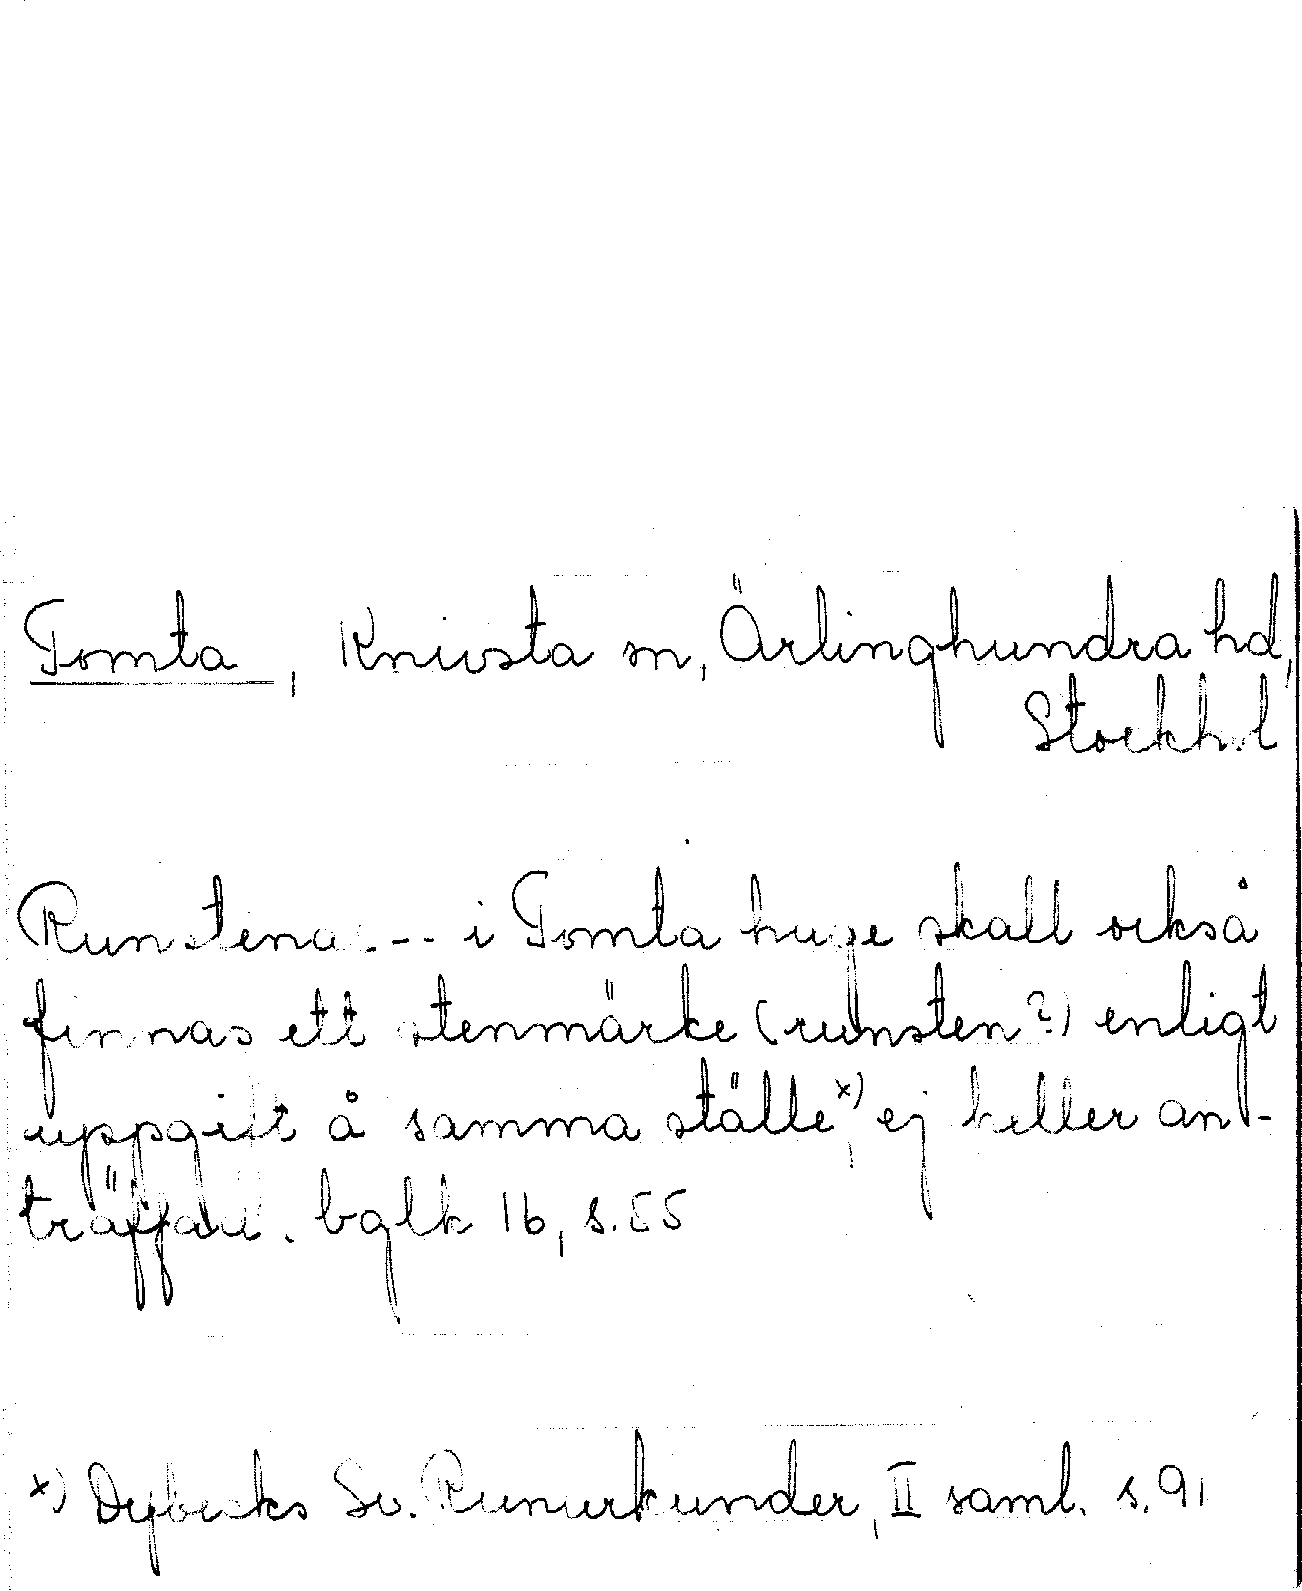 Tomta, Knivsta sn, Ärlinghundra hd,
Stockh. l
Runstena --- i Tomta huge skall också
finnas ett stenmärke (runsten?) enligt
uppgift å samma ställe x), ej heller an-
träffad. bglk 16, s. 55
x) Dybecks Sv. Runurkunder, II saml. s. 91